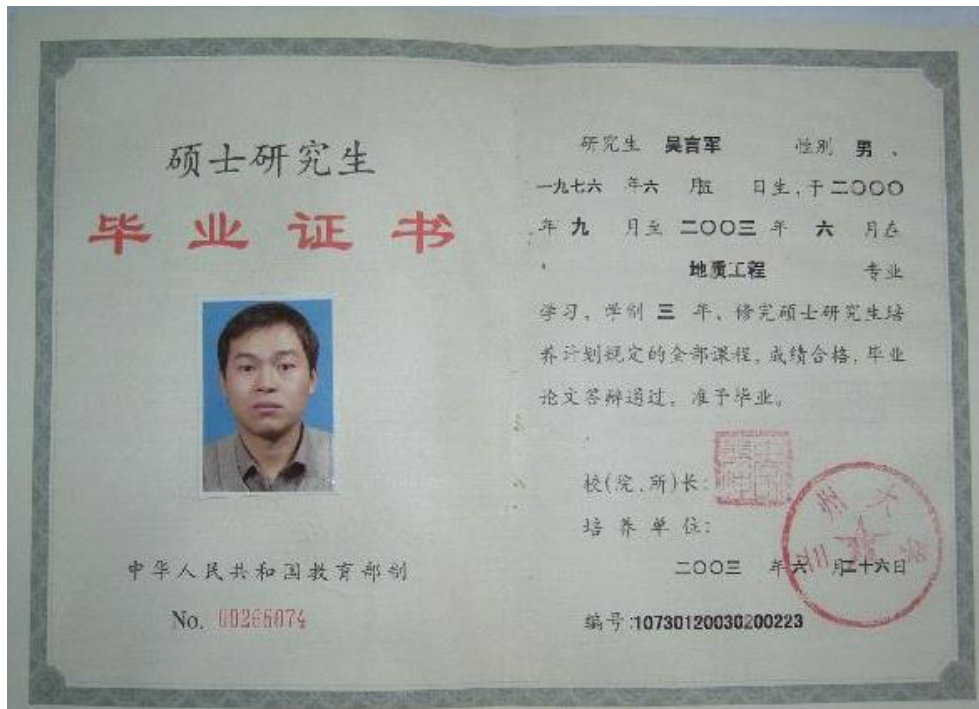 硕士研究生
毕业证书
中华人民共和国教育部制
No. 00266074
研究生 吴言军 性别 男 、
一九七六 年六 月五 日生,于二〇〇〇
年 九 月至 二〇〇三 年 六 月在
地质工程 专业
学习、学制 三 年、修完硕士研究生培
养计划规定的全部课程,成绩合格,毕业
论文答辩通过,准予毕业。
校(院、所)长:
培养单位:
二〇〇三 年六 月二十六日
编号:10730120030200223
兰州大学